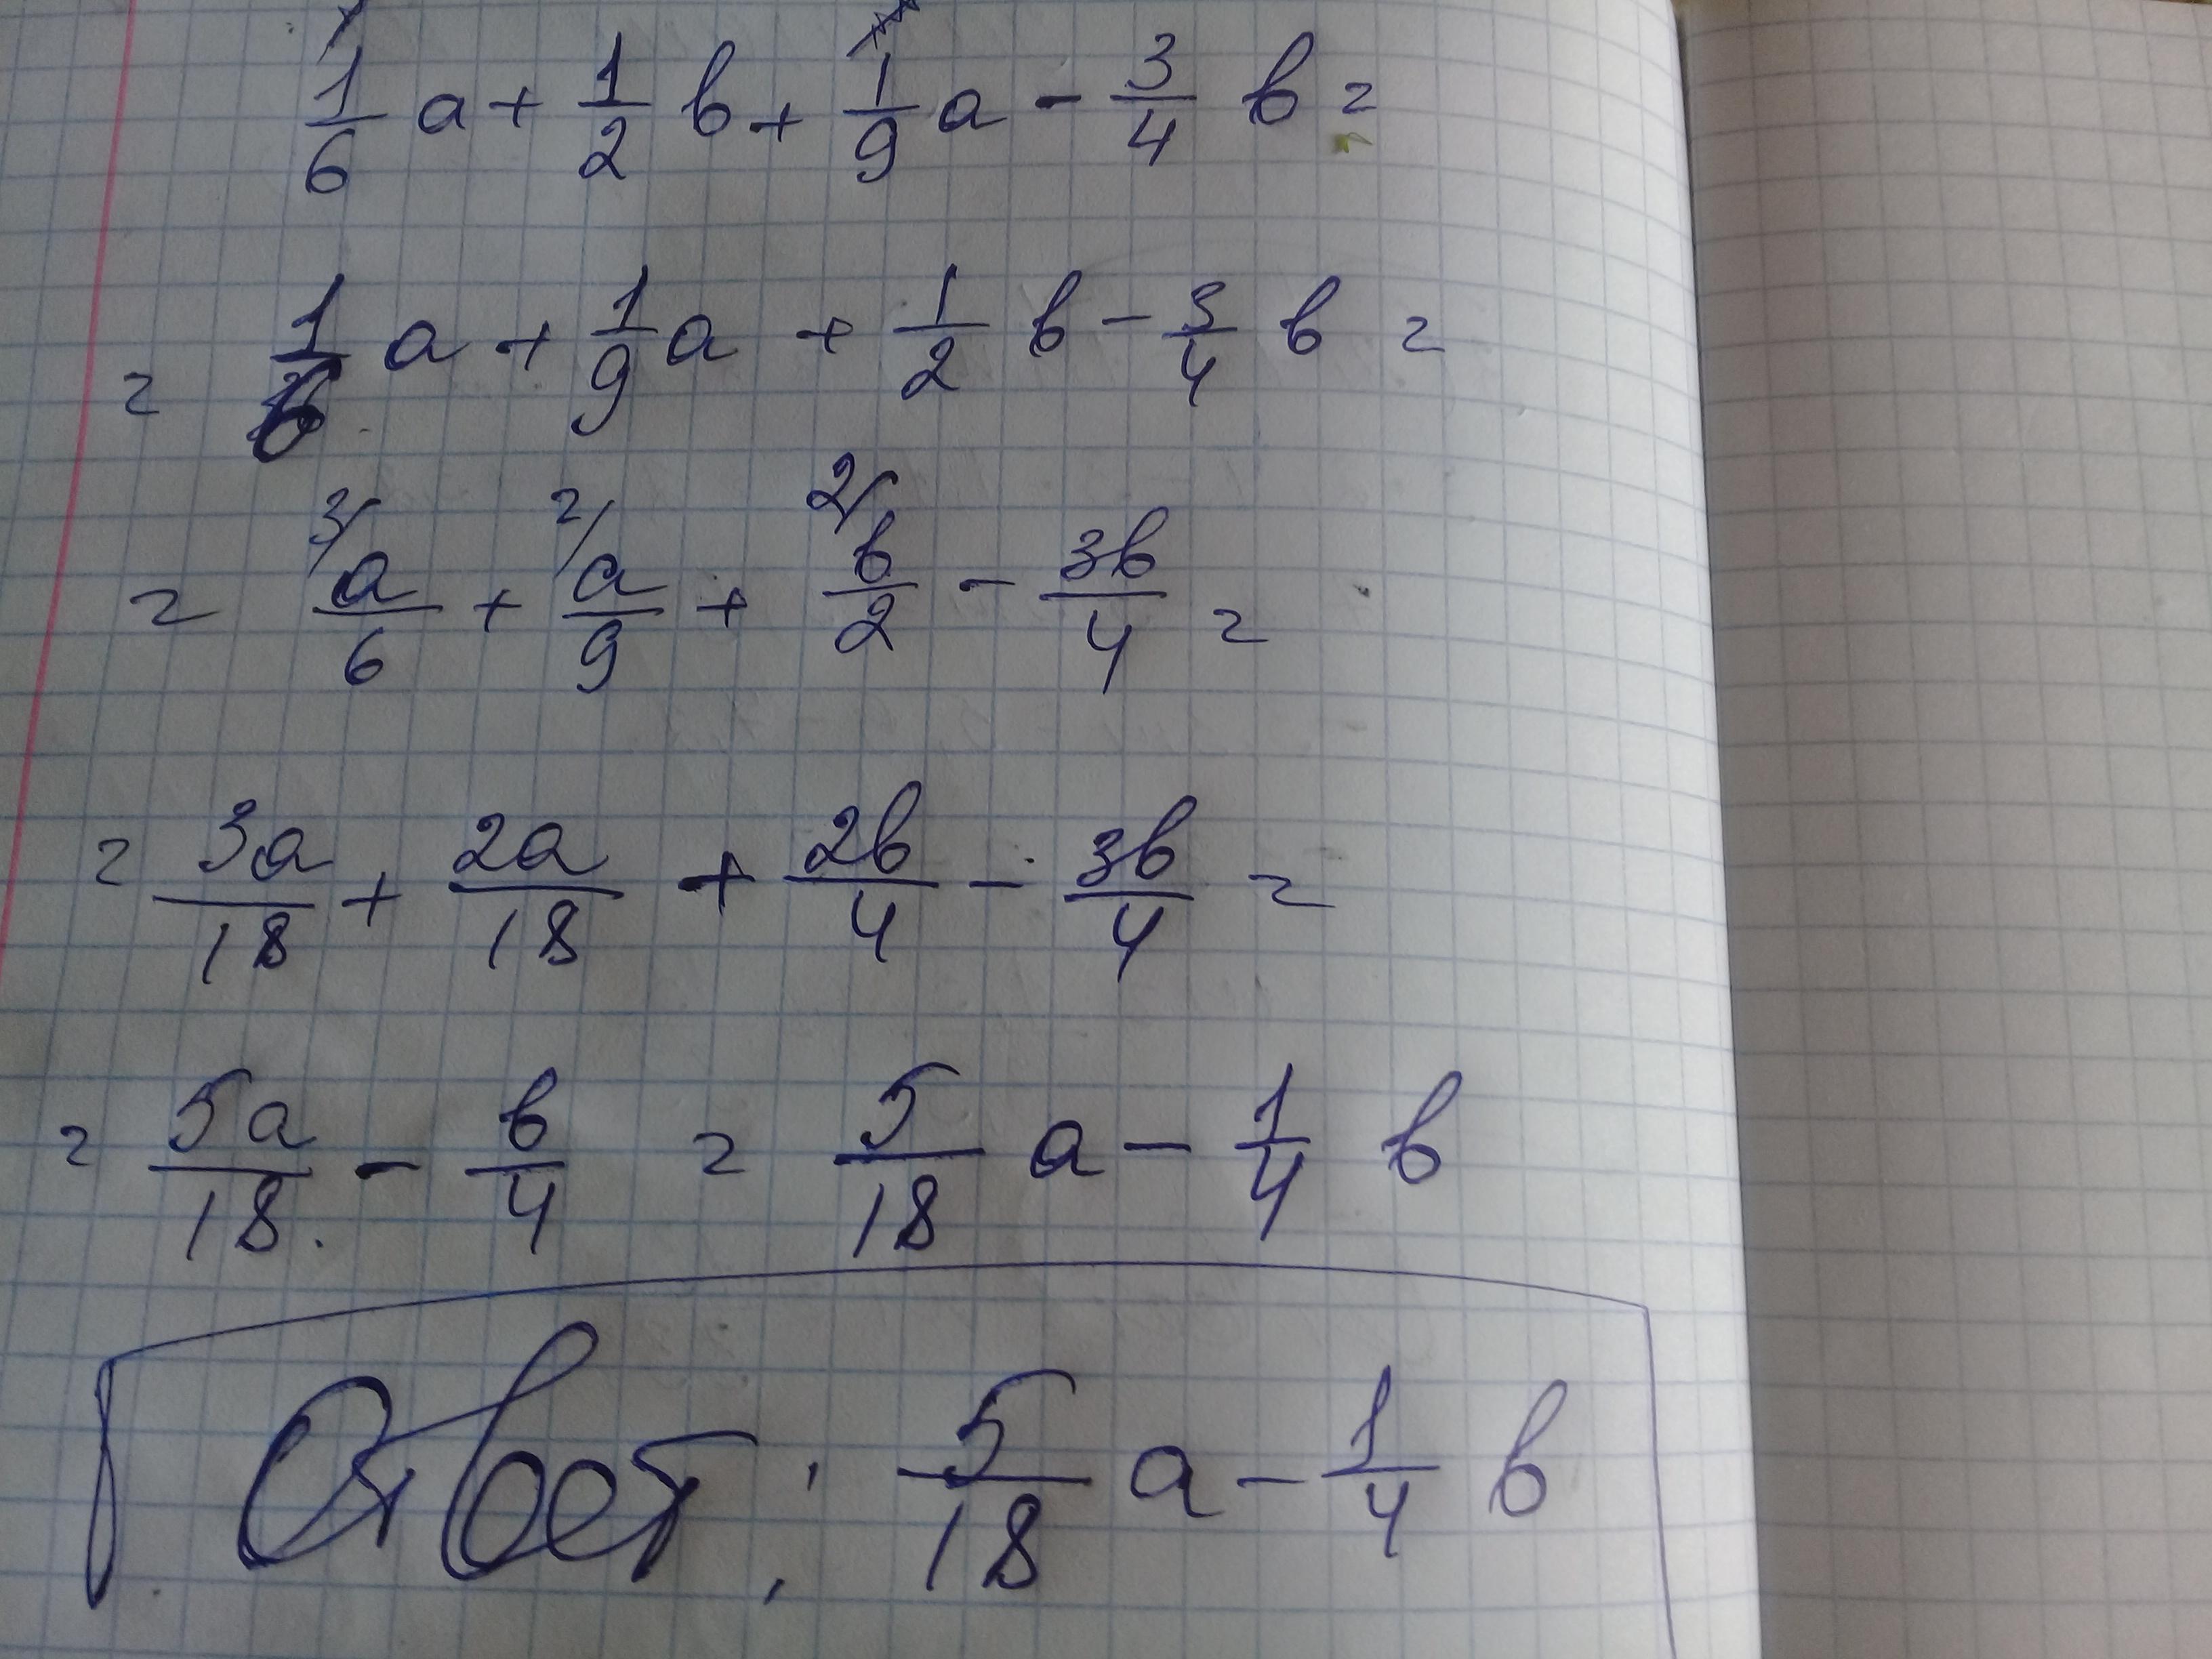 1/6 a + 1/2 b + 1/9 a - 3/4 b =
= 1/6 a + 1/9 a + 1/2 b - 3/4 b =
= 3/ a/6 + 2/ a/9 + 2/ b/2 - 3b/4 =
= 3a/18 + 2a/18 + 2b/4 - 3b/4 =
= 5a/18 - b/4 = 5/18 a - 1/4 b
Ответ: 5/18 a - 1/4 b